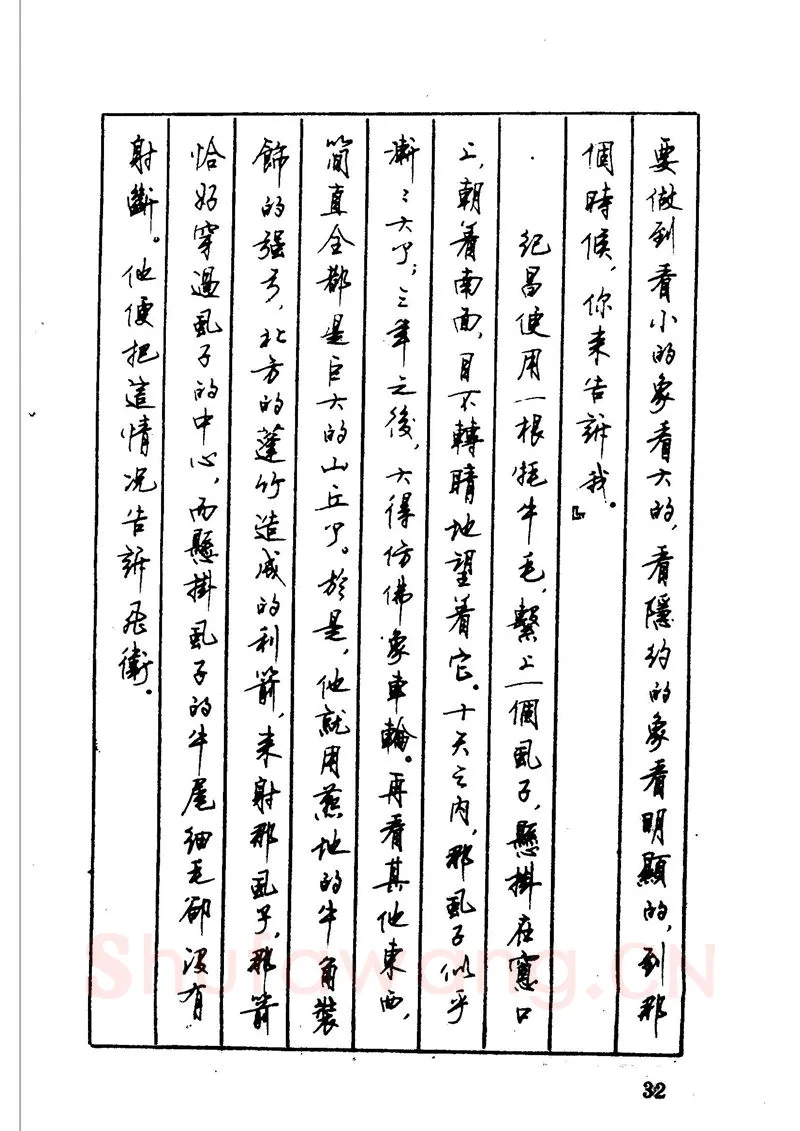 要做到看小的象看大的，看隱約的象看明顯的，到那
個時候，你来告訴我。』
紀昌使用一根牦牛毛，繫上一個虱子，懸掛在窗口
上，朝着南面，目不轉睛地望着它。十天之内，那虱子似乎
漸々大了；三年之後，大得仿佛象車輪。再看其他東西，
简直全都是巨大的山丘了。於是，他就用燕地的牛角裝
飾的强弓，北方的蓬竹造成的利箭，来射那虱子，那箭
恰好穿過虱子的中心，而懸掛虱子的牛尾细毛卻没有
射斷。他便把這情况告訴飛衛。
32
Shufawang.CN